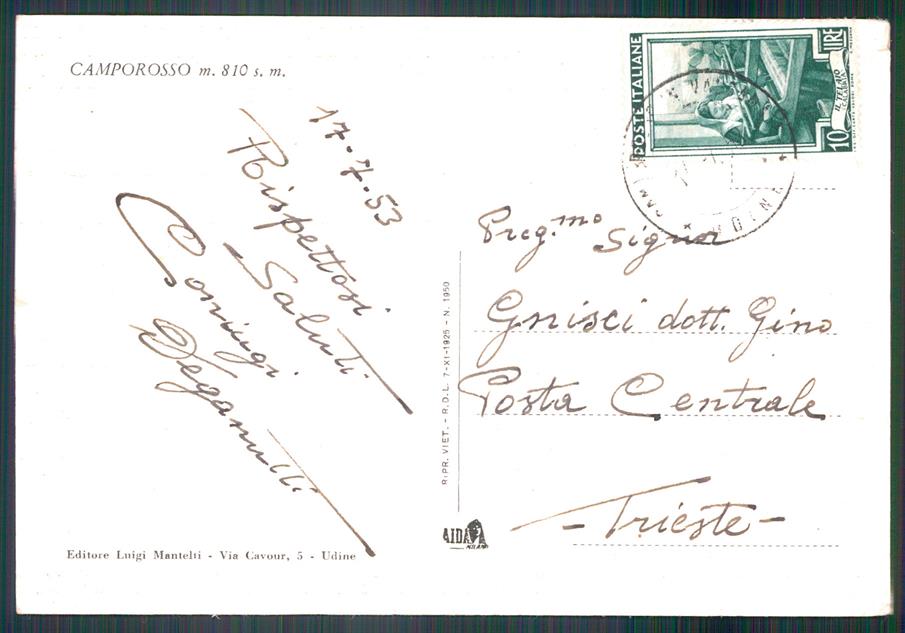 CAMPOROSSO m. 810 s. m.
17-7-53
Rispettosi
Saluti
Coniugi
Deganutti
Editore Luigi Mantelti - Via Cavour, 5 - Udine
RIPR. VIET. - R.D.L. 7-XI-1925 - N. 1950
AIDA
MILANO
POSTE ITALIANE
10 LIRE
IL TELAIO
CALABRIA
UDINE
Preg.mo Signor
Gnisci dott. Gino
Posta Centrale
- Trieste -